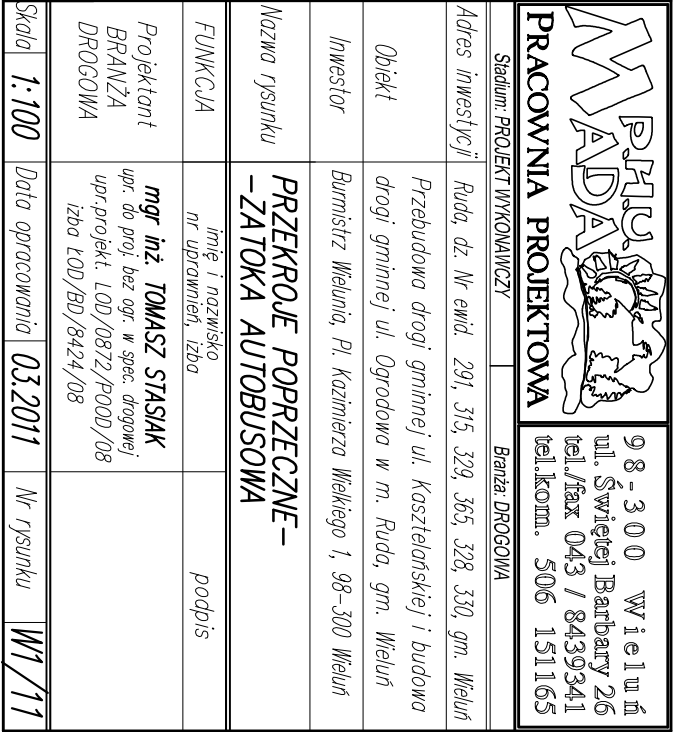 P.H.U.
MADA
PRACOWNIA PROJEKTOWA
98-300 Wieluń
ul. Świętej Barbary 26
tel./fax 043 / 8439341
tel.kom. 506 151165
Stadium: PROJEKT WYKONAWCZY Branża: DROGOWA
Adres inwestycji Ruda, dz. Nr ewid. 291, 315, 329, 365, 328, 330, gm. Wieluń
Obiekt Przebudowa drogi gminnej ul. Kasztelańskiej i budowa
drogi gminnej ul. Ogrodowa w m. Ruda, gm. Wieluń
Inwestor Burmistrz Wielunia, Pl. Kazimierza Wielkiego 1, 98-300 Wieluń
Nazwa rysunku PRZEKROJE POPRZECZNE-
-ZATOKA AUTOBUSOWA
FUNKCJA imię i nazwisko
nr uprawnień, izba podpis
Projektant
BRANŻA
DROGOWA
mgr inż. TOMASZ STASIAK
upr. do proj. bez ogr. w spec. drogowej
upr.projekt. LOD/0872/POOD/08
izba ŁOD/BD/8424/08
Skala 1:100 Data opracowania 03.2011 Nr rysunku W1/11